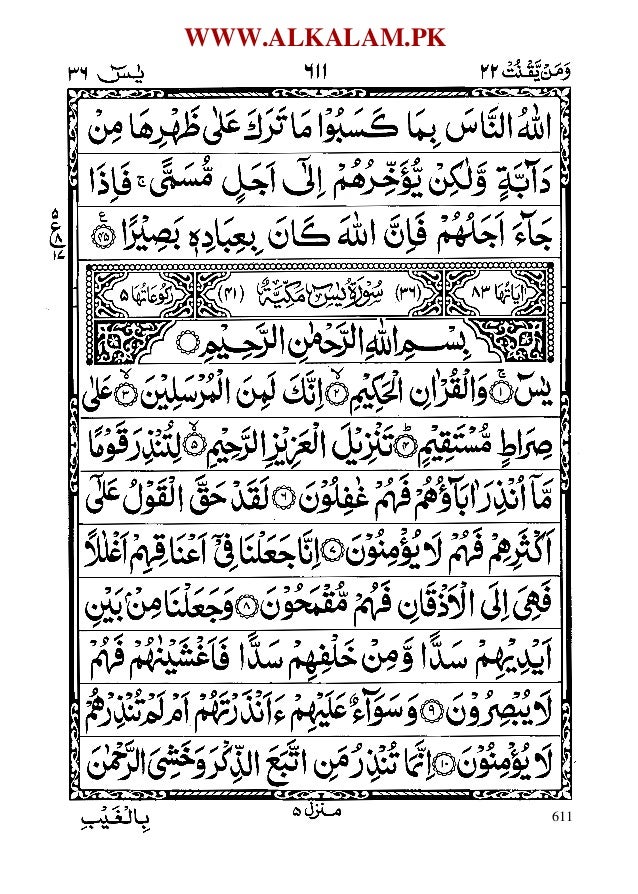 WWW.ALKALAM.PK
وَمَنۡ يَّقۡنُتۡ ٢٢ ٦١١ يٰسٓ ٣٦
اللّٰهُ النَّاسَ بِمَا كَسَبُوۡا مَا تَرَكَ عَلٰى ظَهۡرِهَا مِنۡ
دَآبَّةٍ وَّلٰكِنۡ يُّؤَخِّرُهُمۡ اِلٰٓى اَجَلٍ مُّسَمًّىۚ فَاِذَا
جَآءَ اَجَلُهُمۡ فَاِنَّ اللّٰهَ كَانَ بِعِبَادِهٖ بَصِيۡرًا ﴿٤٥﴾
اٰيَاتُهَا ٨٣ (٣٦) سُوۡرَةُ يٰسٓ مَكِّيَّةٌ (٤١) رُكُوۡعَاتُهَا ٥
بِسۡمِ اللّٰهِ الرَّحۡمٰنِ الرَّحِيۡمِ
يٰسٓ ﴿١﴾ وَالۡقُرۡاٰنِ الۡحَكِيۡمِ ﴿٢﴾ اِنَّكَ لَمِنَ الۡمُرۡسَلِيۡنَ ﴿٣﴾ عَلٰى
صِرَاطٍ مُّسۡتَقِيۡمٍ ﴿٤﴾ تَنۡزِيۡلَ الۡعَزِيۡزِ الرَّحِيۡمِ ﴿٥﴾ لِتُنۡذِرَ قَوۡمًا
مَّاۤ اُنۡذِرَ اٰبَآؤُهُمۡ فَهُمۡ غٰفِلُوۡنَ ﴿٦﴾ لَقَدۡ حَقَّ الۡقَوۡلُ عَلٰٓى
اَكۡثَرِهِمۡ فَهُمۡ لَا يُؤۡمِنُوۡنَ ﴿٧﴾ اِنَّا جَعَلۡنَا فِىۡۤ اَعۡنَاقِهِمۡ اَغۡلٰلًا
فَهِىَ اِلَى الۡاَذۡقَانِ فَهُمۡ مُّقۡمَحُوۡنَ ﴿٨﴾ وَجَعَلۡنَا مِنۡۢ بَيۡنِ
اَيۡدِيۡهِمۡ سَدًّا وَّمِنۡ خَلۡفِهِمۡ سَدًّا فَاَغۡشَيۡنٰهُمۡ فَهُمۡ
لَا يُبۡصِرُوۡنَ ﴿٩﴾ وَسَوَآءٌ عَلَيۡهِمۡ ءَاَنۡذَرۡتَهُمۡ اَمۡ لَمۡ تُنۡذِرۡهُمۡ
لَا يُؤۡمِنُوۡنَ ﴿١٠﴾ اِنَّمَا تُنۡذِرُ مَنِ اتَّبَعَ الذِّكۡرَ وَخَشِىَ الرَّحۡمٰنَ
منزل ٥
بِالۡغَيۡبِ
611